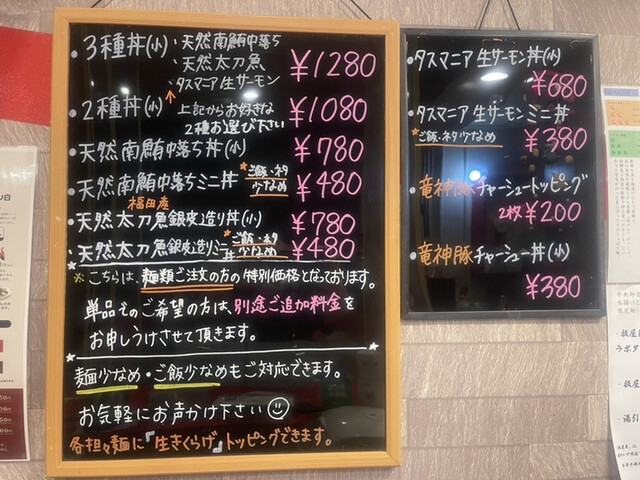 ・3種丼(小)・天然南鮪中落ち
・天然太刀魚
・タスマニア生サーモン
¥1280
・2種丼(小) ↑上記からお好きな
2種お選び下さい
¥1080
・天然南鮪中落ち丼(小) ¥780
・天然南鮪中落ちミニ丼 ★ご飯・ネタ
少なめ
¥480
福田産
・天然太刀魚銀皮造り丼(小) ¥780
・天然太刀魚銀皮造りミニ丼 ★ご飯・ネタ
少なめ
¥480
※こちらは、麺類ご注文の方の特別価格となっております。
単品そのご希望の方は、別途ご追加料金を
お申しうけさせて頂きます。
麺少なめ・ご飯少なめもご対応できます。
お気軽にお声かけ下さい
各担々麺に『生きくらげ』トッピングできます。
・タスマニア生サーモン丼(小)
¥680
・タスマニア生サーモンミニ丼
★ご飯・ネタ少なめ ¥380
・竜神豚チャーシュートッピング
2枚¥200
・竜神豚チャーシュー丼(小)
¥380